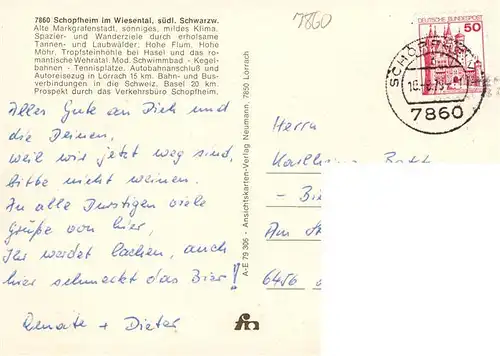 7860 Schopfheim im Wiesental, südl. Schwarzw.
Alte Markgrafenstadt, sonniges, mildes Klima.
Spazier- und Wanderziele durch erholsame
Tannen- und Laubwälder. Hohe Flum, Hohe
Möhr, Tropfsteinhöhle bei Hasel und das ro-
mantische Wehratal. Mod. Schwimmbad - Kegel-
bahnen - Tennisplätze. Autobahnanschluß und
Autoreisezug in Lörrach 15 km. Bahn- und Bus-
verbindungen in die Schweiz. Basel 20 km.
Prospekt durch das Verkehrsbüro Schopfheim.
Alles Gute an Dich und
die Deinen,
weil wir jetzt weg sind,
bitte nicht weinen.
An alle Durstigen viele
Grüße von hier,
Ihr werdet lachen, auch
hier schmeckt das Bier!
Renate + Dieter
A-E 79 306 - Ansichtskarten-Verlag Neumann, 7850 Lörrach
7860
DEUTSCHE BUNDESPOST
50
SCHOPFHEIM
7860
Herrn
Karlheinz
- Bi
Am
6456